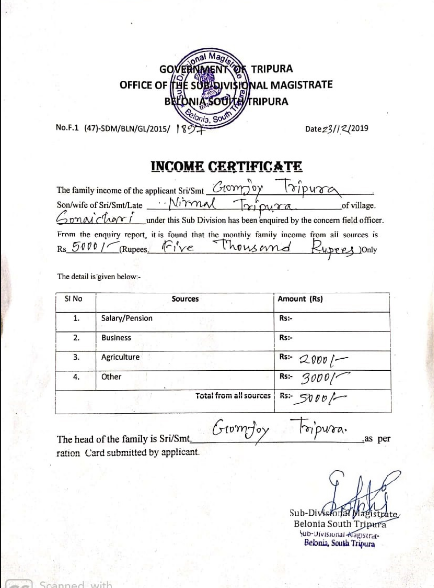 GOVERNMENT OF TRIPURA
OFFICE OF THE SUB-DIVISIONAL MAGISTRATE
BELONIA SOUTH TRIPURA
No.F.1 (47)-SDM/BLN/GL/2015/
Date 23/12/2019
INCOME CERTIFICATE
The family income of the applicant Sri/Smt Gromjoy Tripura
Son/wife of Sri/Smt/Late Nirmal Tripura of village.
Sonaichari under this Sub Division has been enquired by the concern field officer.
From the enquiry report, it is found that the monthly family income from all sources is
Rs 5000/- (Rupees, Five Thousand Rupees )Only
The detail is given below:-
Sl No Sources Amount (Rs)
1. Salary/Pension Rs:-
2. Business Rs:-
3. Agriculture Rs:- 2000/-
4. Other Rs:- 3000/-
Total from all sources Rs:- 5000/-
The head of the family is Sri/Smt, Gromjoy Tripura. ,as per
ration Card submitted by applicant.
Sub-Divisional Magistrate
Belonia South Tripura
Sub-Divisional Magistrate
Belonia, South Tripura
Scanned with